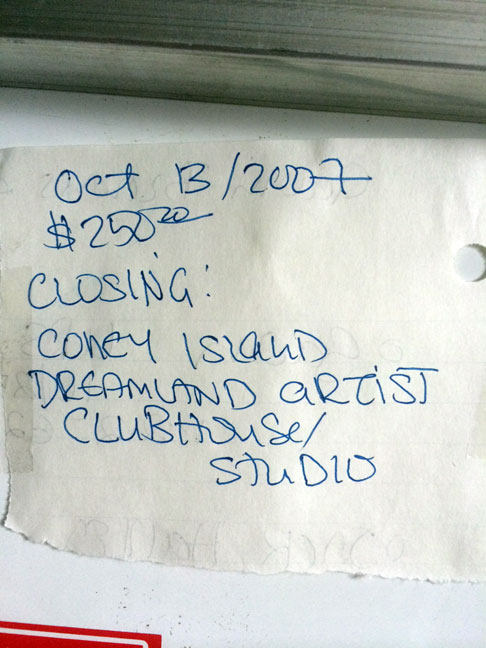 Oct 13/2007
$250.00
CLOSING:
CONEY ISLAND
DREAMLAND ARTIST
CLUBHOUSE/
STUDIO